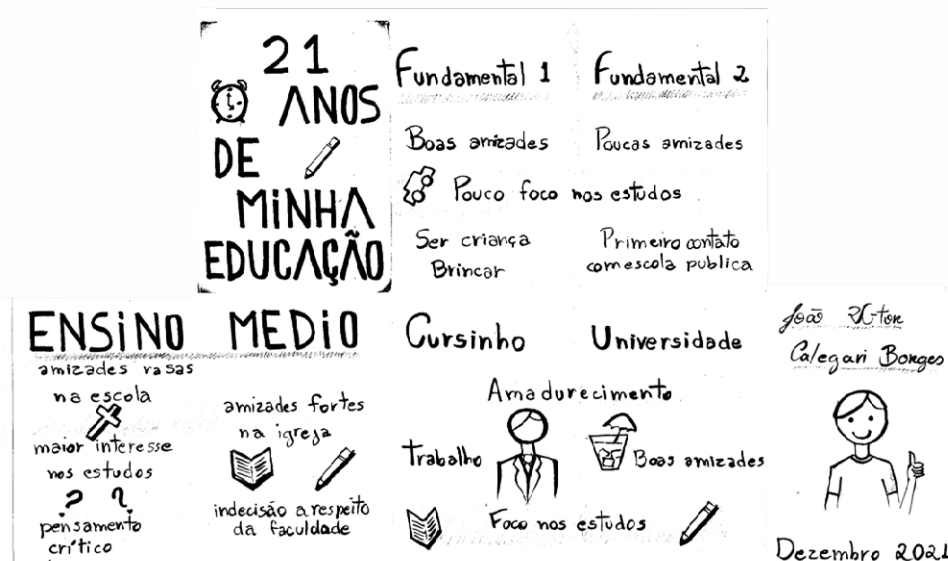 21
ANOS
DE
MINHA
EDUCAÇÃO
Fundamental 1
Boas amizades
Fundamental 2
Poucas amizades
Pouco foco nos estudos
Ser criança
Brincar
Primeiro contato
com escola publica
ENSINO MEDIO
amizades rasas
na escola
maior interesse
nos estudos
? ?
pensamento
crítico
amizades fortes
na igreja
indecisão a respeito
da faculdade
Cursinho
Universidade
Amadurecimento
Trabalho
Boas amizades
Foco nos estudos
João
Calegari Borges
Dezembro 2021